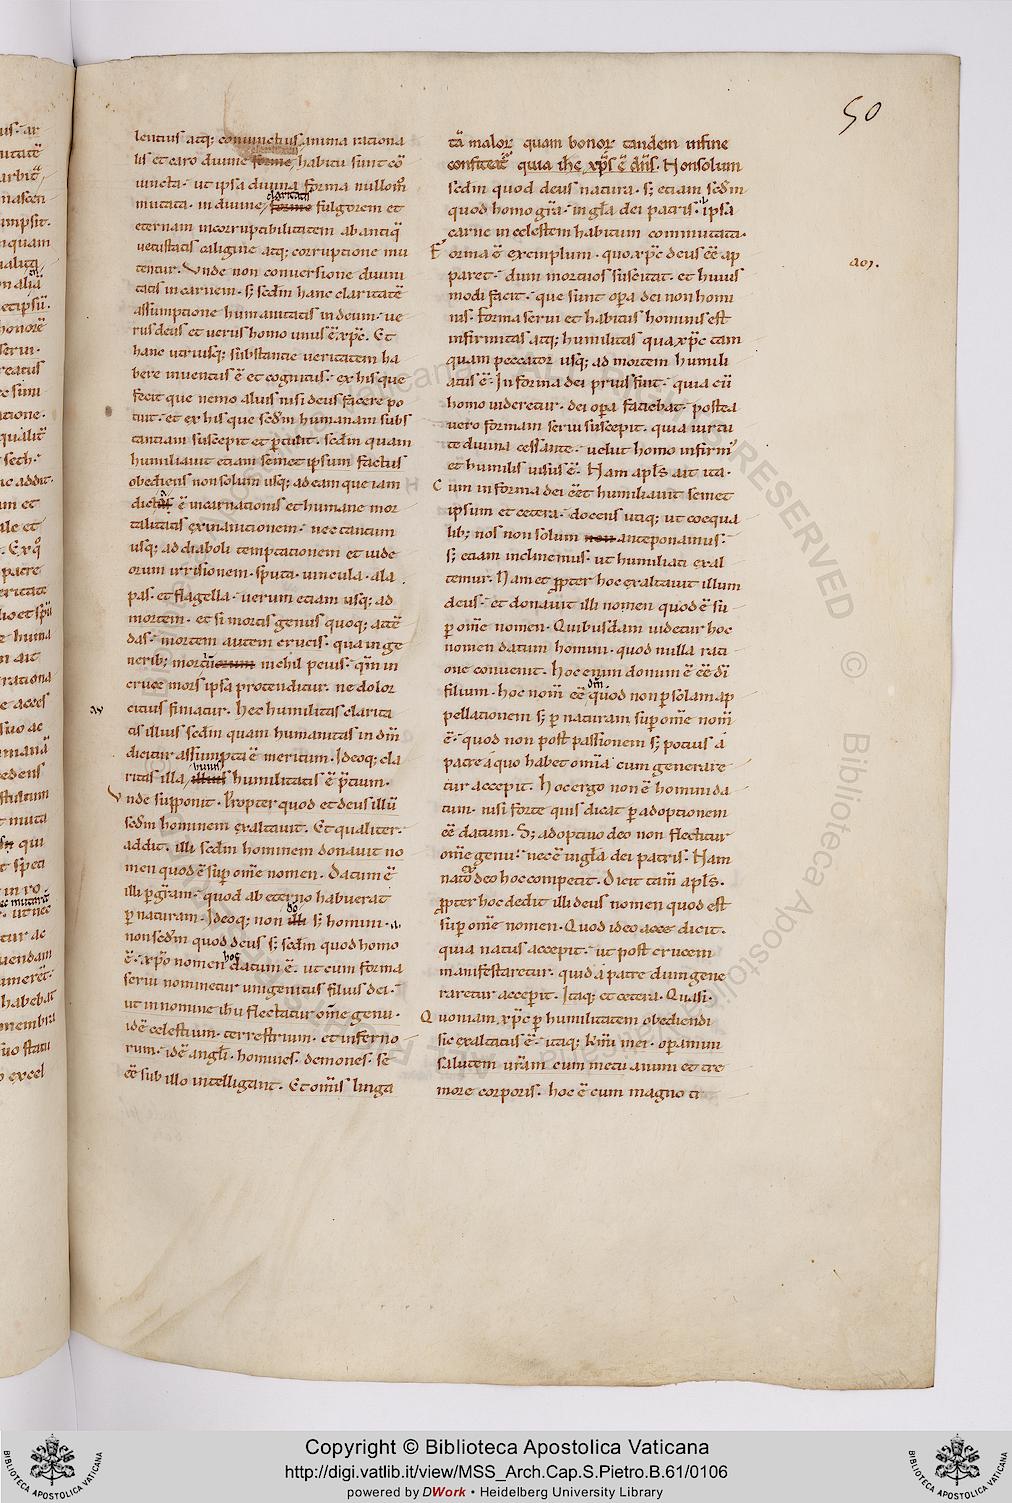 50
lentius atq; coniunctius anima rationa
lis et caro diuine forme habitu sunt co᷄
iuncta· ut ipsa diuina forma nullom̄
mutata· in diuine, claritatis forme fulgorem et
eternam incorruptibilitatem ab antiq̄
uetustatis caligine atq; corruptione mu
tentur. Vnde non conuersione diuini
tatis in carnem· s; sc̄dm hanc claritatē
assumptione humanitatis in deum· ue
rus deus et uerus homo unus ē xp̄c. Et
hanc utriusq; substantie ueritatem ha
bere inuentus ē et cognitus· ex his que
fecit que nemo alius nisi deus facere po
tuit· et ex his que sc̄dm humanam subs
tantiam suscepit et p̄tulit. sc̄dm quam
humiliauit etiam sem̄et ipsum factus
obediens non solum usq; ad eam que iam
dicta ē incarnationis et humane mor
talitatis exinanitionem· nec tantum
usq; ad diaboli temptationem et iude
orum irrisionem· sputa· uincula· ala
pas· et flagella· uerum etiam usq; ad
mortem· et si mortis genus quoq; atte᷄
das· mortem autem crucis· qua in ge
nerib; mortiū nichil peius· qm̄ in
cruce mors ipsa protenditur· ne dolor
citius finiatur· hec humilitas clarita
tis illius sc̄dm quam humanitas in dm̄
dicitur assumpta ē meritum. Ideoq; cla
ritas illa, huius illius humilitatis ē p̄tium.
Vnde supponit· Propter quod et deus illū
sc̄dm hominem exaltauit. Et qualiter·
addit· illi sc̄dm hominem donauit no
men quod ē sup om̄e nomen. Datum ē
illi p gr̄am· quod ab eterno habuerat
p naturam. Ideoq; non do illi s; homini·
non sc̄dm quod deus s; sc̄dm quod homo
ē· xp̄o nomen hoc datum ē· ut cum forma
serui nominetur unigenitus filius dei·
ut in nomine ih̄u flectatur om̄e genu·
idē celestium· terrestrium· et inferno
rum· idē angl̄i· homines· demones· se
ēē sub illo intelligant. Et om̄is lingua
tā malor̄ quam bonor̄ tandem in fine
confiteat̄ quia ih̄c xp̄s ē dn̄s. Non solum
sc̄dm quod deus natura· s; etiam sc̄dm
quod homo gr̄a· in gl̄a dei patris· ipsa
carne in celestem habitum commutata·
Forma ē exemplum· quo xp̄c deus ēē ap
paret· dum mortuos suscitat· et huius
modi facit· que sunt opa dei non homi
nis· forma serui et habitus hominis est
infirmitas atq; humilitas qua xp̄c tam
quam peccator usq; ad mortem humili
atus ē. In forma dei prius fuit· quia cū
homo uideretur· dei opa faciebat· postea
uero formam serui suscepit· quia uirtu
te diuina cessante· uelut homo infirm'
et humilis uisus ē. Nam apl̄s ait ita·
Cum in forma dei ēēt humiliauit semet
ipsum et cetera· docens utiq; ut coequa
lib; nos non solum non anteponamus·
s; etiam inclinemus· ut humiliati exal
temur. Nam et ppter hoc exaltauit illum
deus· et donauit illi nomen quod ē su
p om̄e nomen. Quibusdam uidetur hoc
nomen datum homini· quod nulla rati
one conuenit. Hoc enim donum ē ēē di
filium· hoc nom̄ ēē quod non p solam ap
pellationem s; p naturam sup om̄e nom̄
ē· quod non post passionem s; potius á
patre á quo habet omīa cum generare
tur accepit. Hoc ergo non ē homini da
tum· nisi forte quis dicat p adoptionem
ēē datum. S; adoptiuo deo non flectitur
om̄e genu· nec ē in gl̄a dei patris· Nam
nato deo hoc competit. Dicit tam̄ apl̄s·
ppter hoc dedit illi deus nomen quod est
sup om̄e nomen. Quod ideo acce dicit·
quia natus accepit· ut post crucem
manifestaretur· quid á patre dum gene
raretur acceperit. Itaq; et cetera. Quasi·
Quoniam xp̄c p humilitatem obediendi
sic exaltatus ē· itaq; km̄i mei· opamini
salutem ur̄am cum metu animi et tre
more corporis· hoc ē cum magno ti
Copyright © Biblioteca Apostolica Vaticana
http://digi.vatlib.it/view/MSS_Arch.Cap.S.Pietro.B.61/0106
powered by DWork • Heidelberg University Library